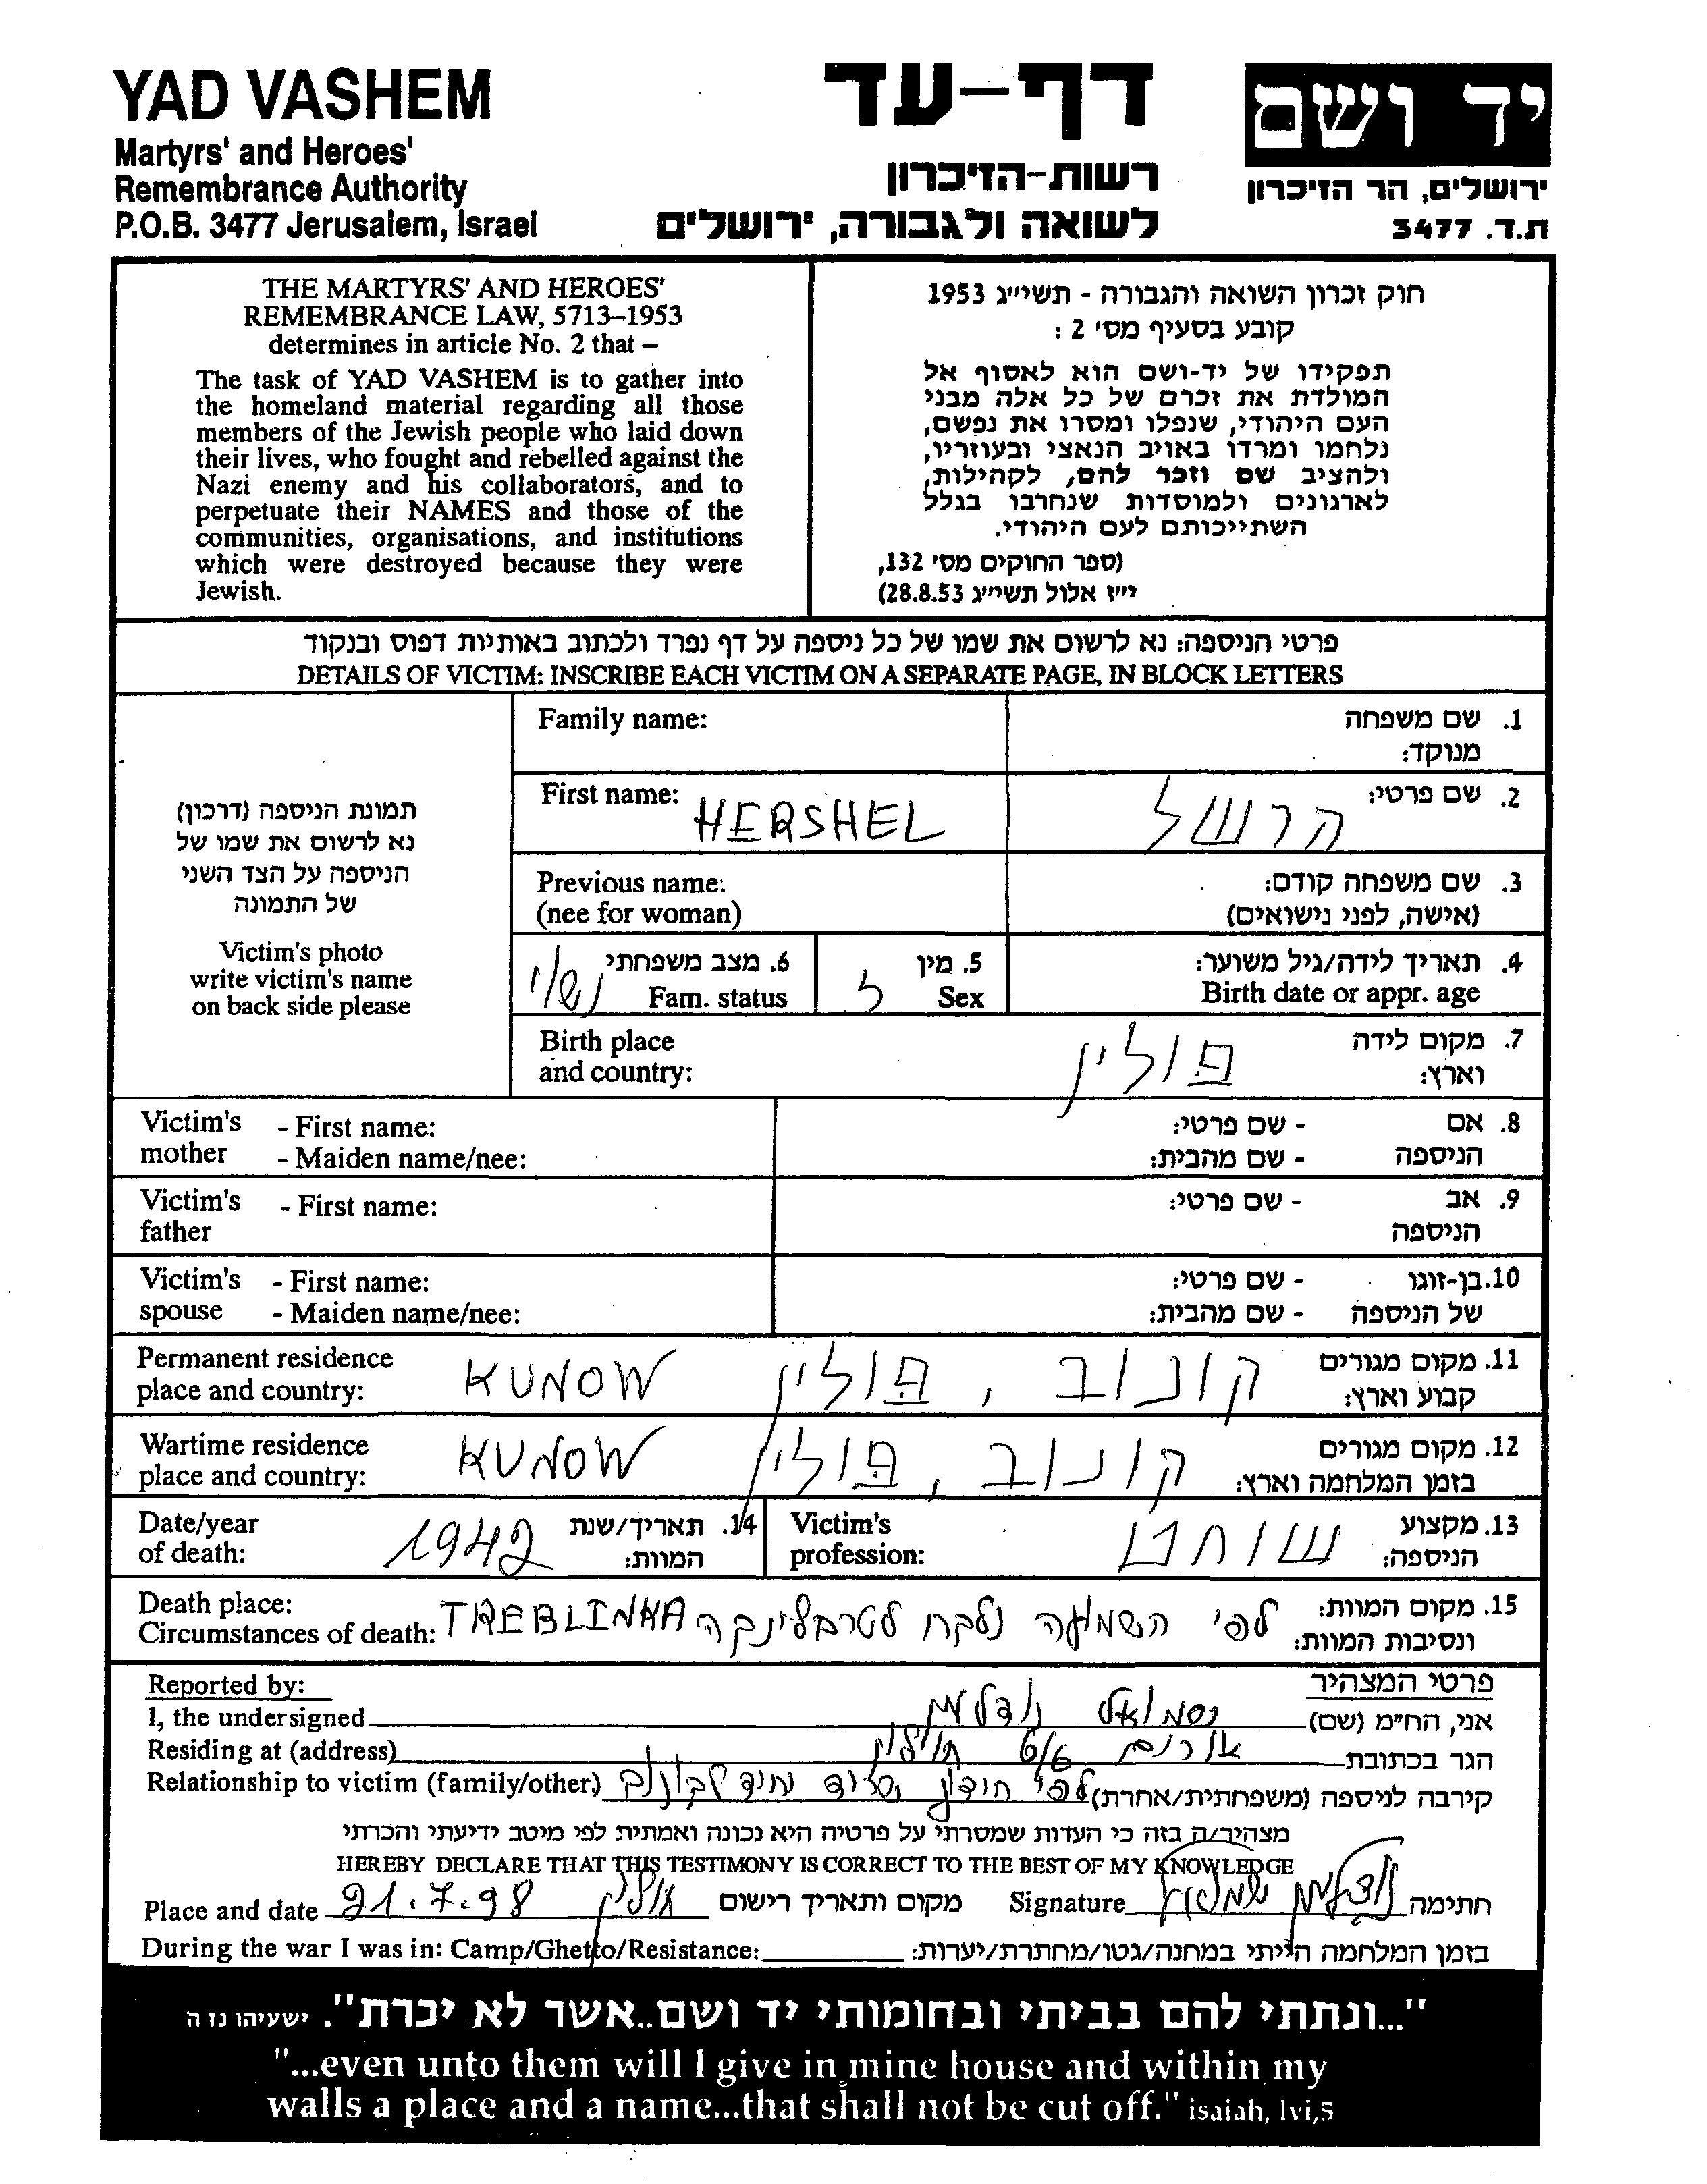 YAD VASHEM
Martyrs' and Heroes'
Remembrance Authority
P.O.B. 3477 Jerusalem, Israel
דף-עד
רשות-הזיכרון
לשואה ולגבורה, ירושלים
יד ושם
ירושלים, הר הזיכרון
ת.ד. 3477
THE MARTYRS' AND HEROES'
REMEMBRANCE LAW, 5713–1953
determines in article No. 2 that –
The task of YAD VASHEM is to gather into
the homeland material regarding all those
members of the Jewish people who laid down
their lives, who fought and rebelled against the
Nazi enemy and his collaborators, and to
perpetuate their NAMES and those of the
communities, organisations, and institutions
which were destroyed because they were
Jewish.
חוק זכרון השואה והגבורה - תשי״ג 1953
קובע בסעיף מס׳ 2 :
תפקידו של יד-ושם הוא לאסוף אל
המולדת את זכרם של כל אלה מבני
העם היהודי, שנפלו ומסרו את נפשם,
נלחמו ומרדו באויב הנאצי ובעוזריו,
ולהציב שם וזכר להם, לקהילות,
לארגונים ולמוסדות שנחרבו בגלל
השתייכותם לעם היהודי.
(ספר החוקים מס׳ 132,
י״ז אלול תשי״ג 28.8.53)
פרטי הניספה: נא לרשום את שמו של כל ניספה על דף נפרד ולכתוב באותיות דפוס ובנקוד
DETAILS OF VICTIM: INSCRIBE EACH VICTIM ON A SEPARATE PAGE, IN BLOCK LETTERS
תמונת הניספה (דרכון)
נא לרשום את שמו של
הניספה על הצד השני
של התמונה
Victim's photo
write victim's name
on back side please
Family name: 1. שם משפחה
מנוקד:
First name: HERSHEL הרשל 2. שם פרטי:
Previous name: 3. שם משפחה קודם:
(nee for woman) (אישה, לפני נישואים)
נשוי 6. מצב משפחתי ז 5. מין 4. תאריך לידה/גיל משוער:
Fam. status Sex Birth date or appr. age
Birth place פולין 7. מקום לידה
and country: וארץ:
Victim's - First name: - שם פרטי: 8. אם
mother - Maiden name/nee: - שם מהבית: הניספה
Victim's - First name: - שם פרטי: 9. אב
father הניספה
Victim's - First name: - שם פרטי: 10. בן-זוגו
spouse - Maiden name/nee: - שם מהבית: של הניספה
Permanent residence KUNOW קונוב, פולין 11. מקום מגורים
place and country: קבוע וארץ:
Wartime residence KUNOW קונוב, פולין 12. מקום מגורים
place and country: בזמן המלחמה וארץ:
Date/year 1942 14. תאריך/שנת Victim's שוחט 13. מקצוע
of death: המוות: profession: הניספה:
Death place: 15. מקום המוות:
Circumstances of death: TREBLINKA לפי השמועה נלקח לטרבלינקה ונסיבות המוות:
Reported by: פרטי המצהיר
I, the undersigned אני, הח״מ (שם)
Residing at (address) 6/6 הגר בכתובת
Relationship to victim (family/other) לפי קירבה לניספה (משפחתית/אחרת)
מצהיר/ה בזה כי העדות שמסרתי על פרטיה היא נכונה ואמתית לפי מיטב ידיעתי והכרתי
HEREBY DECLARE THAT THIS TESTIMONY IS CORRECT TO THE BEST OF MY KNOWLEDGE
Place and date 21.7.98 מקום ותאריך רישום Signature חתימה
During the war I was in: Camp/Ghetto/Resistance: בזמן המלחמה הייתי במחנה/גטו/מחתרת/יערות:
"...ונתתי להם בביתי ובחומותי יד ושם..אשר לא יכרת". ישעיהו נו ה
"...even unto them will I give in mine house and within my
walls a place and a name...that shall not be cut off." isaiah, lvi,5